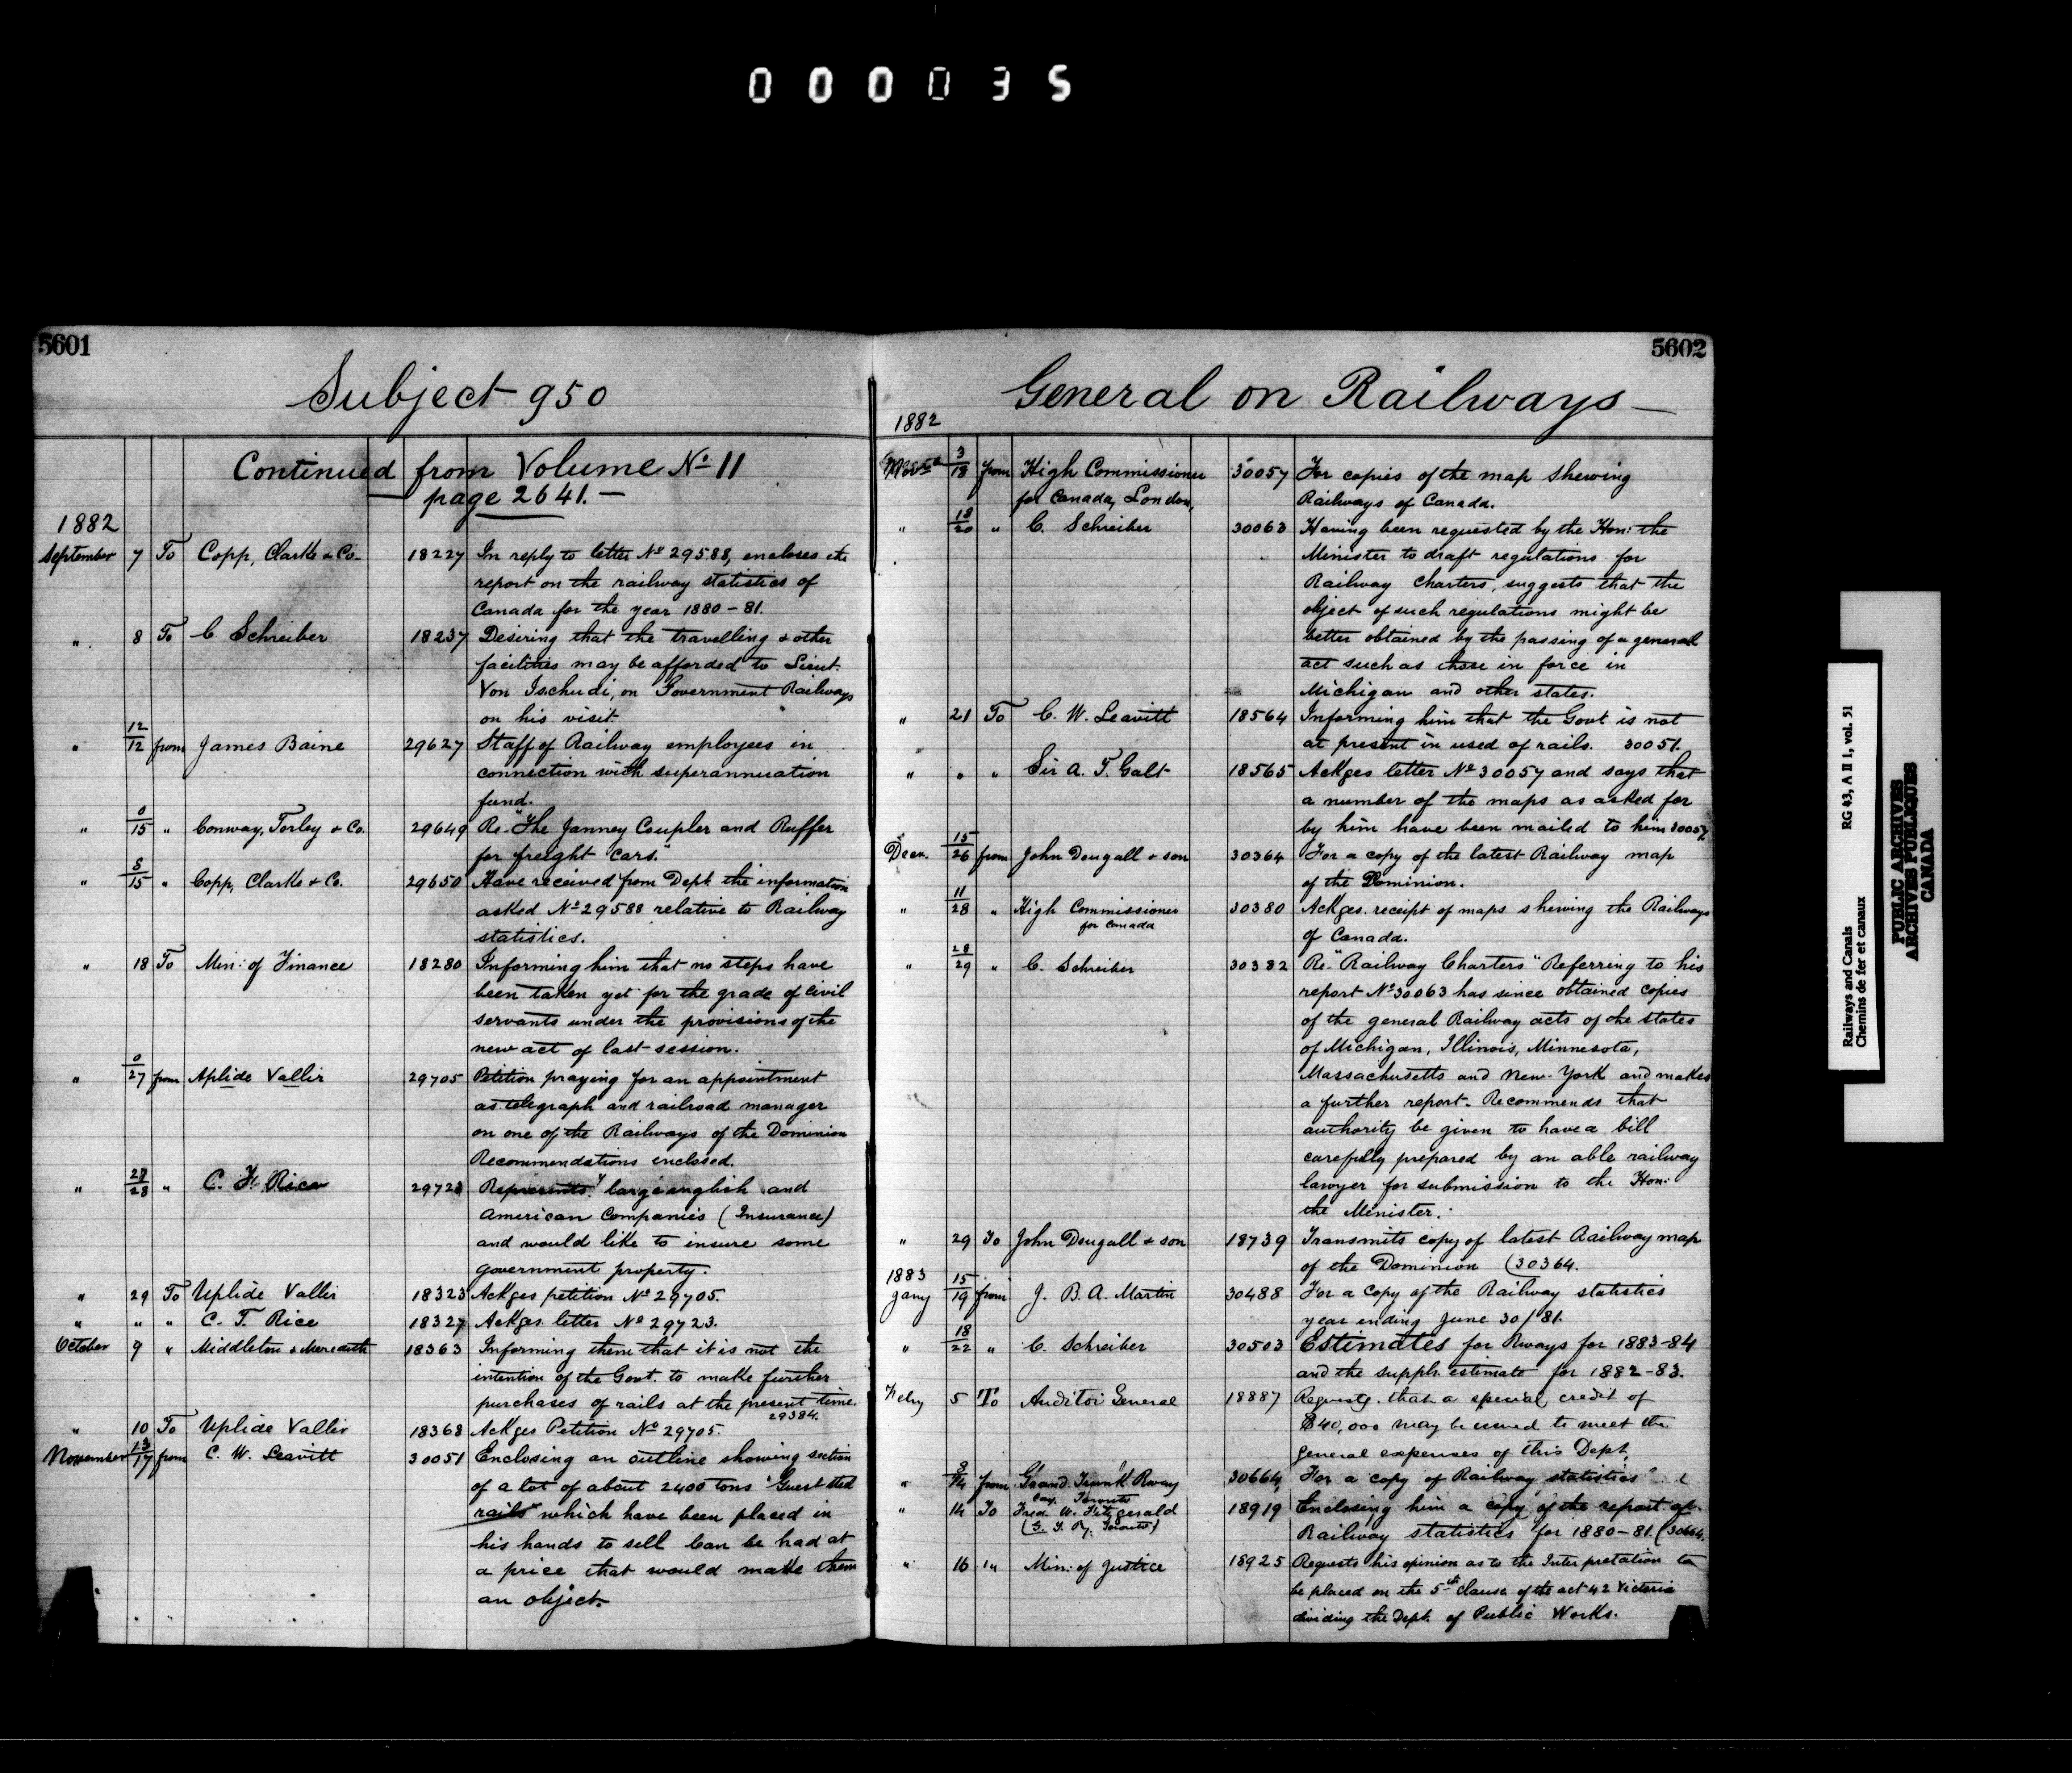 000035
5601
Subject 950
Continued from Volume No 11
page 2641.
1882
September 7 To Copp, Clarke & Co. 18227 In reply to letter No 29588, encloses the
report on the railway statistics of
Canada for the year 1880-81.
" 8 To C Schreiber 18237 Desiring that the travelling & other
facilities may be afforded to Lieut.
Von Tschudi, on Government Railways
on his visit.
" 12/12 from James Baine 29627 Staff of Railway employees in
connection with superannuation
fund.
" 0/15 " Conway, Torley & Co. 29649 Re-"The Janney Coupler and Buffer
for freight cars."
" 8/15 " Copp, Clarke & Co. 29650 Have received from Dept. the information
asked No 29588 relative to Railway
statistics.
" 18 To Min: of Finance 18280 Informing him that no steps have
been taken yet for the grade of civil
servants under the provisions of the
new act of last session.
" 0/27 from Aplide Vallir 29705 Petition praying for an appointment
as telegraph and railroad manager
on one of the Railways of the Dominion
Recommendations inclosed.
" 27/28 " C. F. Rice 29723 Represents large english and
American Companies (Insurance)
and would like to insure some
government property.
" 29 To Uplide Vallir 18323 Ackges petition No 29705.
" " " C. F. Rice 18327 Ackges letter No 29723.
October 9 " Middleton & Meredith 18363 Informing them that it is not the
intention of the Govt. to make further
purchases of rails at the present time.
29384.
" 10 To Uplide Vallir 18368 Ackges Petition No 29705.
November 13/17 from C. W. Leavitt 30051 Enclosing an outline showing section
of a lot of about 2400 tons "Guest Sted
rails" which have been placed in
his hands to sell Can be had at
a price that would make them
an object.
5602
General on Railways
1882
Novr 3/18 from High Commissioner 30057 For copies of the map shewing
for Canada, London, Railways of Canada.
" 18/20 " C. Schreiber 30063 Having been requested by the Hon: the
Minister to draft regulations for
Railway Charters, suggests that the
object of such regulations might be
better obtained by the passing of a general
act such as those in force in
Michigan and other states.
" 21 To C. W. Leavitt 18564 Informing him that the Govt is not
at present in used of rails. 30051.
" " " Sir A. T. Galt 18565 Ackges letter No 30057 and says that
a number of the maps as asked for
by him have been mailed to him 30057
Decr. 15/26 from John Dougall & son 30364 For a copy of the latest Railway map
of the Dominion.
" 11/28 " High Commissioner 30380 Ackges. receipt of maps shewing the Railways
for Canada of Canada.
" 28/29 " C. Schreiber 30382 Re-"Railway Charters" Referring to his
report No 30063 has since obtained copies
of the general Railway acts of the states
of Michigan, Illinois, Minnesota,
Massachusetts and New-York and makes
a further report. Recommends that
authority be given to have a bill
carefully prepared by an able railway
lawyer for submission to the Hon:
the Minister.
" 29 To John Dougall & son 18739 Transmits copy of latest Railway map
of the Dominion (30364.
1883
Jany 15/19 from J. B. A. Martin 30488 For a copy of the Railway statistics
year ending June 30/81.
" 18/22 " C. Schreiber 30503 Estimates for Rways for 1883-84
and the supplr. estimate for 1882-83.
Febry 5 To Auditor General 18887 Requests. that a special credit of
$40,000 may be issued to meet the
general expenses of this Dept.
" 8/14 from Grand Trunk Rway 30664 For a copy of Railway statistics"
Coy. Toronto
" 14 To Fred. W. Fitzgerald 18919 Enclosing him a copy of the report of
(G. T. Ry. Toronto) Railway statistics for 1880-81. (30664.
" 16 " Min: of Justice 18925 Requests his opinion as to the Interpretation to
be placed on the 5th Clause of the act 42 Victoria
dividing the Dept. of Public Works.
Railways and Canals RG 43, A II 1, vol. 51
Chemins de fer et canaux
PUBLIC ARCHIVES
ARCHIVES PUBLIQUES
CANADA